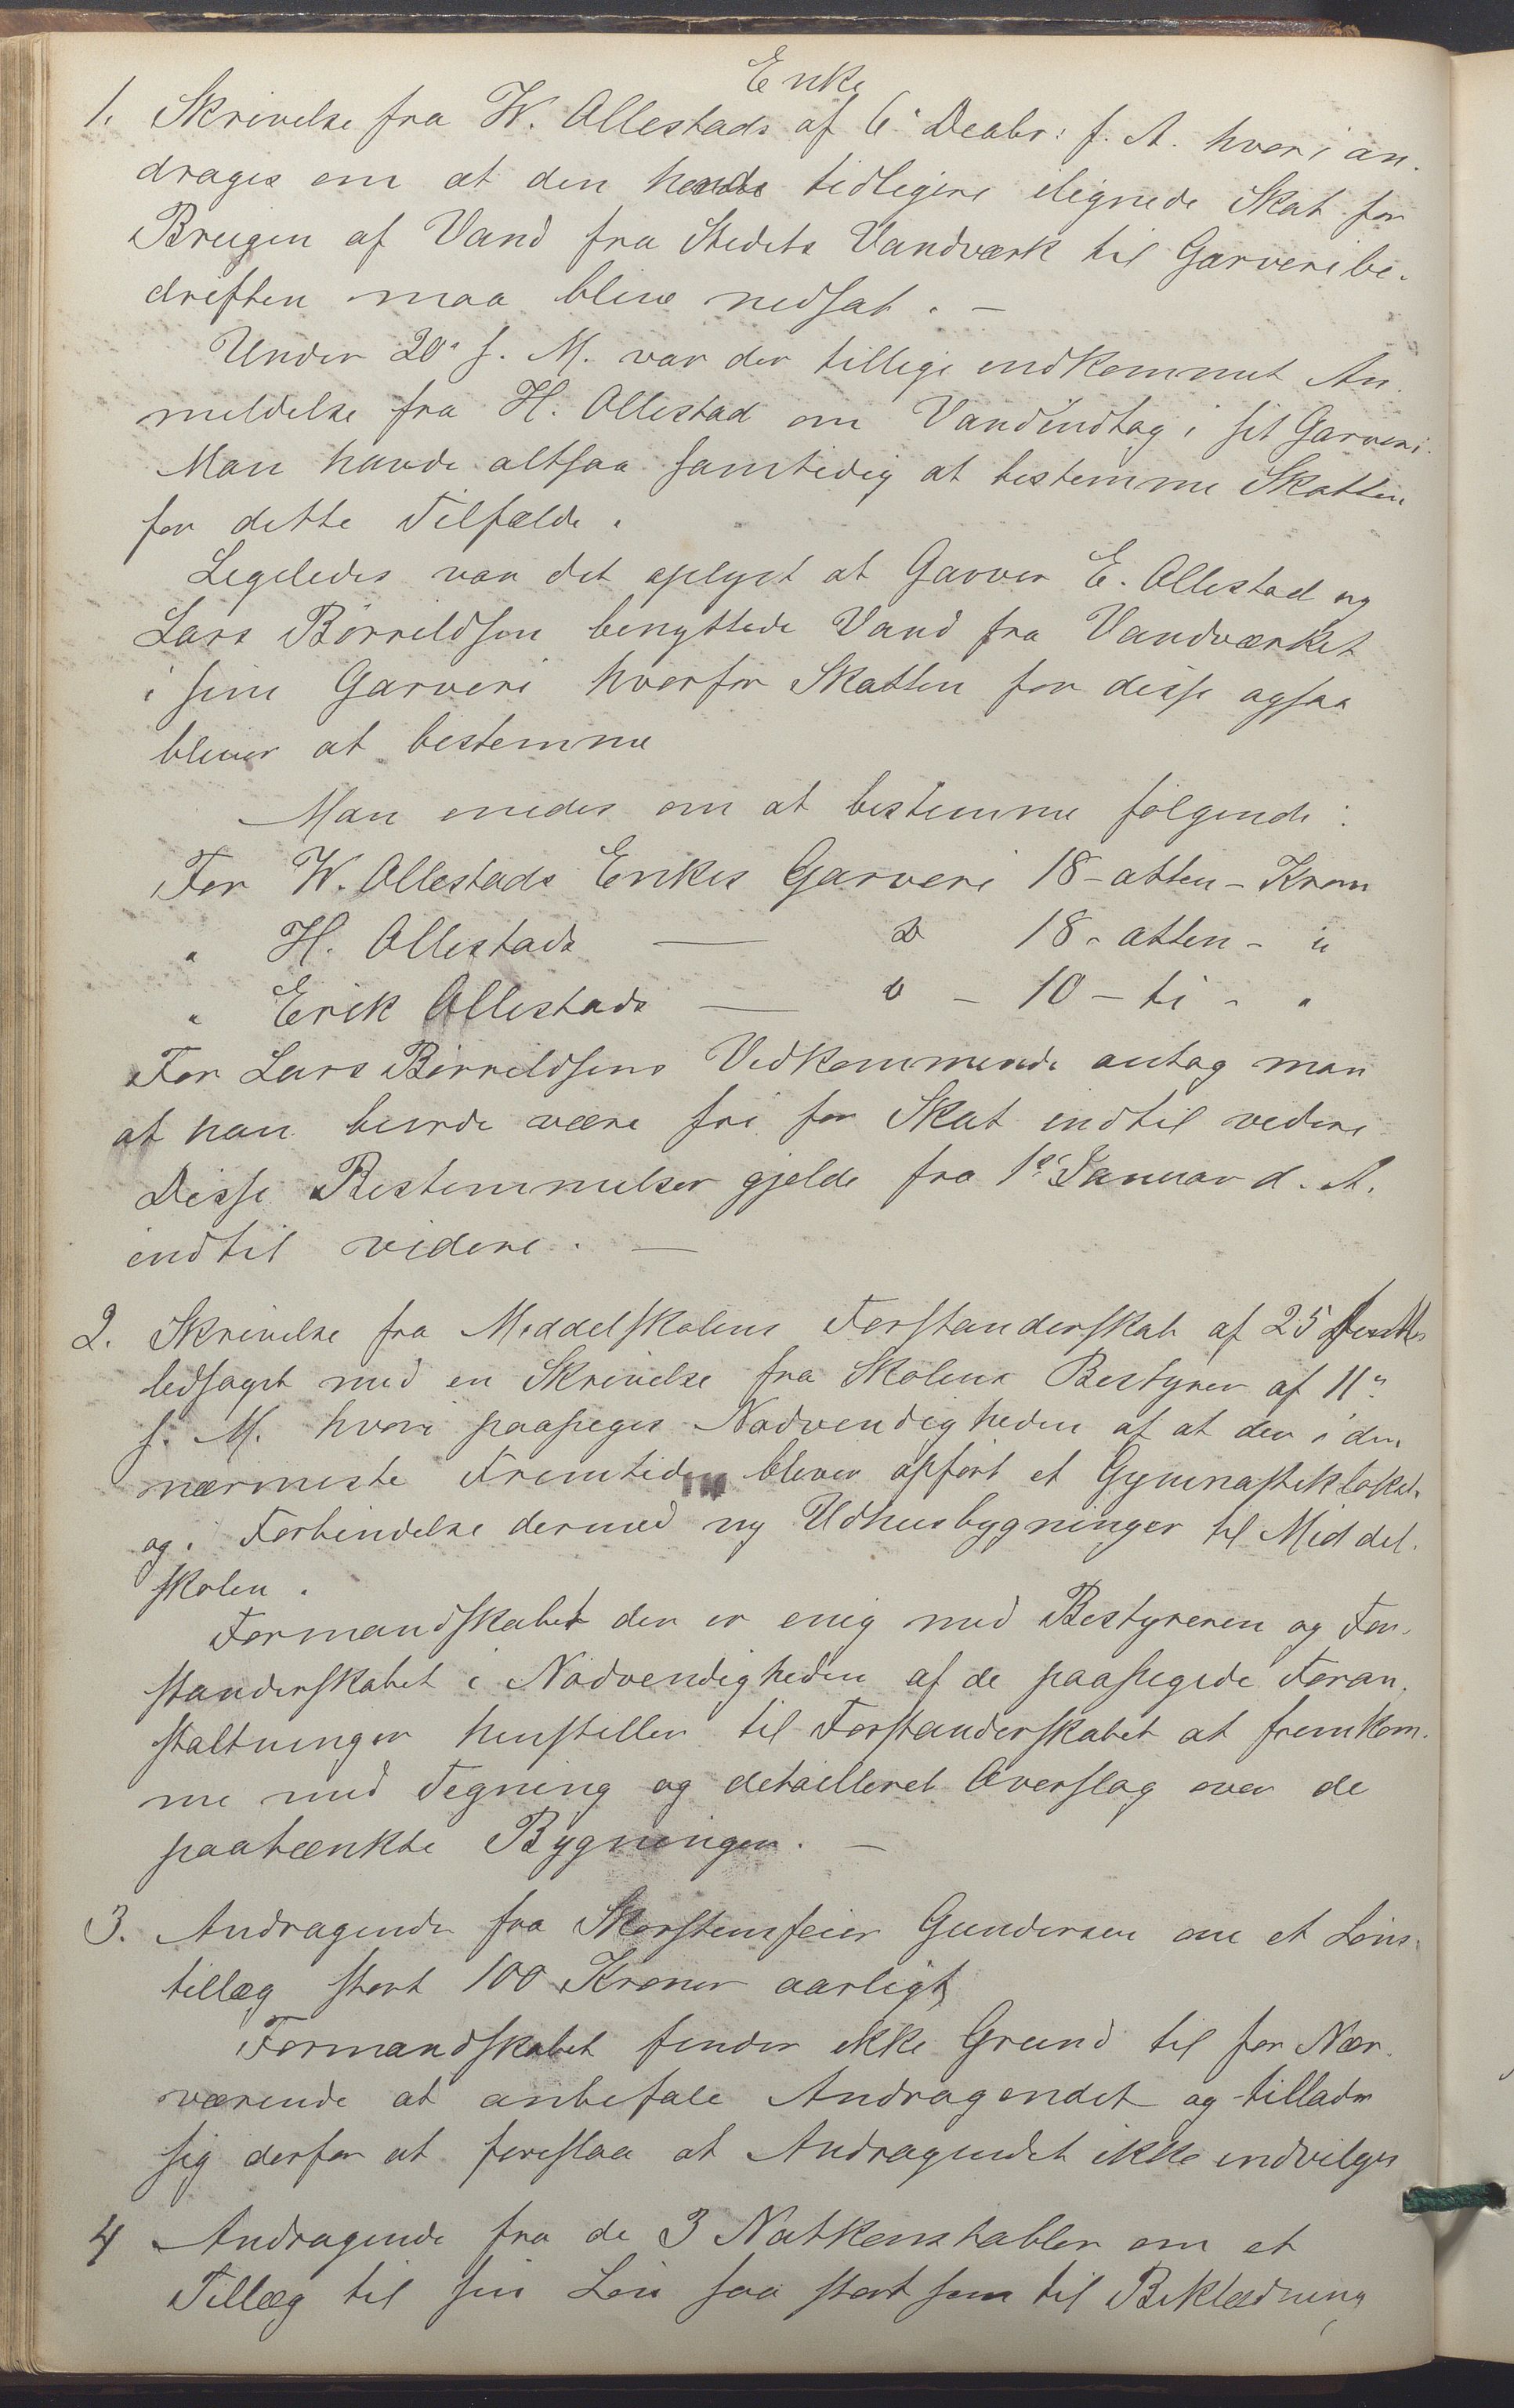 Enke
1. Skrivelse fra W. Ollestads af 6' Decbr: f. A. hvori an-
drages om at den hende tidligere ilignede Skat for
Brugen af Vand fra Stedets Vandværk til Garveribe-
driften maa blive nedsat. -
Under 20' f. M. var der tillige indkommet An-
meldelse fra H. Ollestad om Vandindtag i sit Garveri.
Man havde altsaa samtidig at bestemme Skatten
for dette Tilfælde.
Ligeledes var det oplyst at Garver E. Ollestad og
Lars Börreldsen benyttede Vand fra Vandværket
i sine Garveri hvorfor Skatten for disse ogsaa
bliver at bestemme
Man enedes om at bestemme følgende:
For W. Ollestads Enkes Garveri 18 - atten - Kroner
" H. Ollestads — do 18 - atten - "
" Erik Ollestads — do - 10 - ti - "
For Lars Börreldsens Vedkommende antog man
at han burde være fri for Skat indtil videre
Disse Bestemmelser gjelde fra 1ste Januar d. A.
indtil videre. —
2. Skrivelse fra Middelskolens Forstanderskab af 25
ledsaget med en Skrivelse fra Skolens Bestyrer af 11'
s. M. hvori paapeges Nødvendigheden af at der i den
nærmeste Fremtiden bliver opført et Gymnastiklokale
og i Forbindelse dermed ny Udhusbygninger til Middel-
skolen.
Formandskabet der er enig med Bestyreren og For-
standerskabet i Nødvendigheden af de paapegede Foran-
staltninger henstiller til Forstanderskabet at fremkom-
me med Tegning og detailleret Overslag over de
paatænkte Bygninger. —
3. Andragende fra Skorstensfeier Gundersen om et Løns-
tillæg stort 100 Kroner aarligt
Formandskabet finder ikke Grund til for Nær-
værende at anbefale Andragendet og tillader
sig derfor at foreslaa at Andragendet ikke indvilges
4 Andragende fra de 3 Natkonstabler om et
Tillæg til sin Løn saa stort som til Beklædning